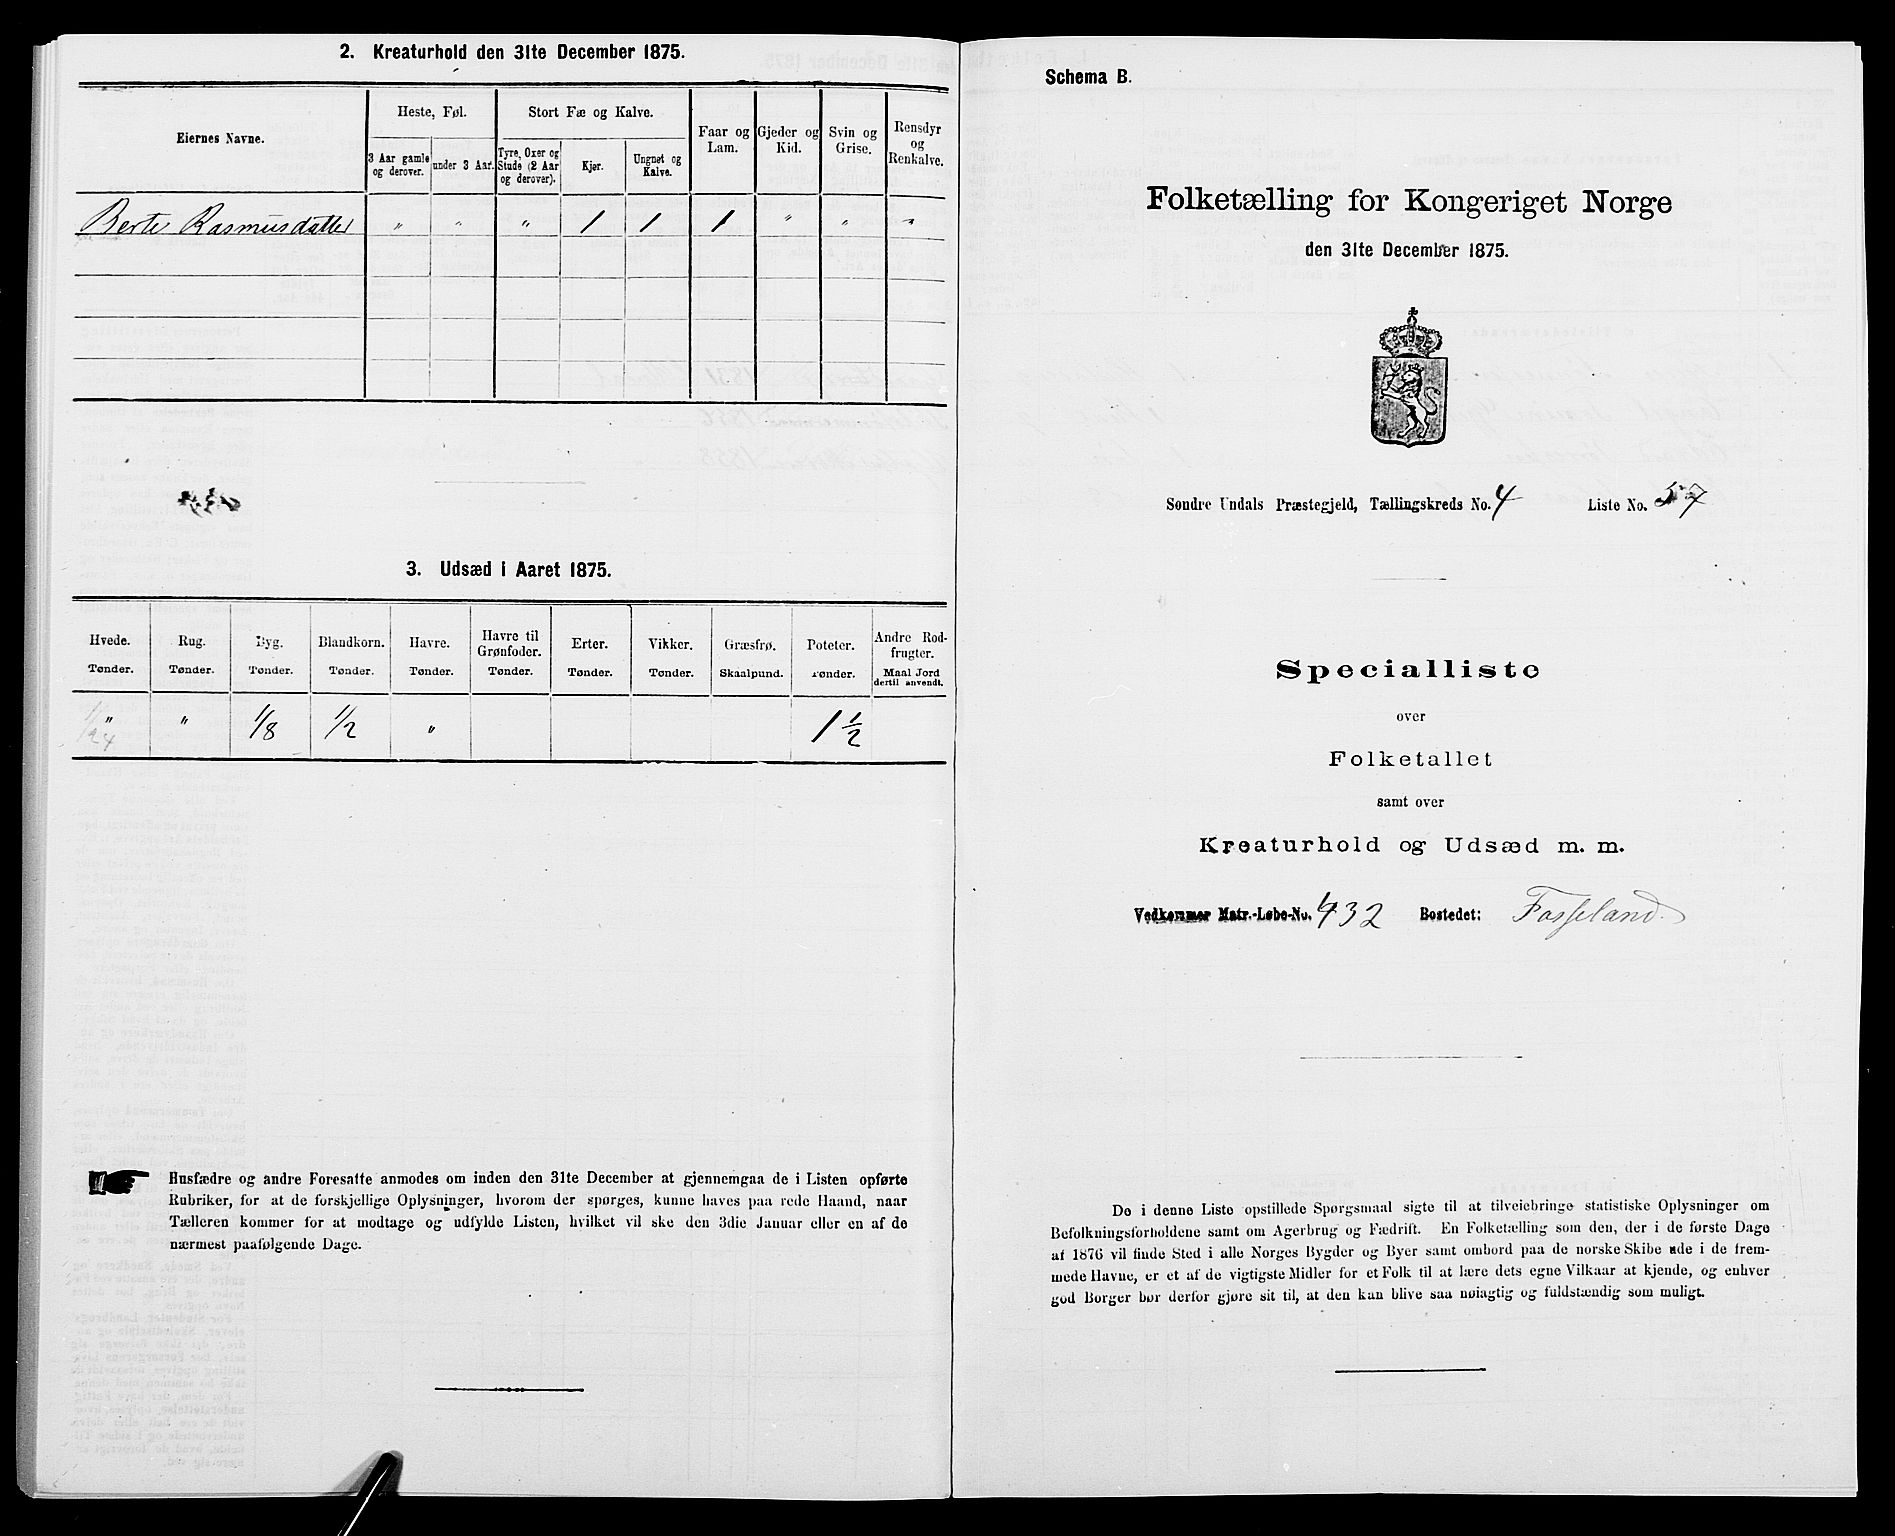 2. Kreaturhold den 31te December 1875.
Eiernes Navne.
Heste, Føl.
Stort Fæ og Kalve.
Faar og Lam.
Gjeder og Kid.
Svin og Grise.
Rensdyr og Renkalve.
3 Aar gamle og derover.
under 3 Aar.
Tyre, Oxer og Stude (2 Aar og derover).
Kjør.
Ungnøt og Kalve.
Berte Rasmusdatter " " " 1 1 1 " " "
3. Udsæd i Aaret 1875.
Hvede. Rug. Byg. Blandkorn. Havre. Havre til Grønfoder. Erter. Vikker. Græsfrø. Poteter. Andre Rodfrugter.
Tønder. Tønder. Tønder. Tønder. Tønder. Tønder. Tønder. Tønder. Skaalpund. Tønder. Maal Jord dertil anvendt.
" " 1/8 1/2 " 1 1/2
1/24
Husfædre og andre Foresatte anmodes om inden den 31te December at gjennemgaa de i Listen opførte
Rubriker, for at de forskjellige Oplysninger, hvorom der spørges, kunne haves paa rede Haand, naar
Tælleren kommer for at modtage og udfylde Listen, hvilket vil ske den 3die Januar eller en af de
nærmest paafølgende Dage.
Schema B.
Folketælling for Kongeriget Norge
den 31te December 1875.
Søndre Undals Præstegjeld, Tællingskreds No. 4 Liste No. 57
Specialliste
over
Folketallet
samt over
Kreaturhold og Udsæd m. m.
Vedkommer Matr.-Løbe-No. 432 Bostedet: Fosseland
De i denne Liste opstillede Spørgsmaal sigte til at tilveiebringe statistiske Oplysninger om
Befolkningsforholdene samt om Agerbrug og Fædrift. En Folketælling som den, der i de første Dage
af 1876 vil finde Sted i alle Norges Bygder og Byer samt ombord paa de norske Skibe ude i de frem-
mede Havne, er et af de vigtigste Midler for et Folk til at lære dets egne Vilkaar at kjende, og enhver
god Borger bør derfor gjøre sit til, at den kan blive saa nøiagtig og fuldstændig som muligt.